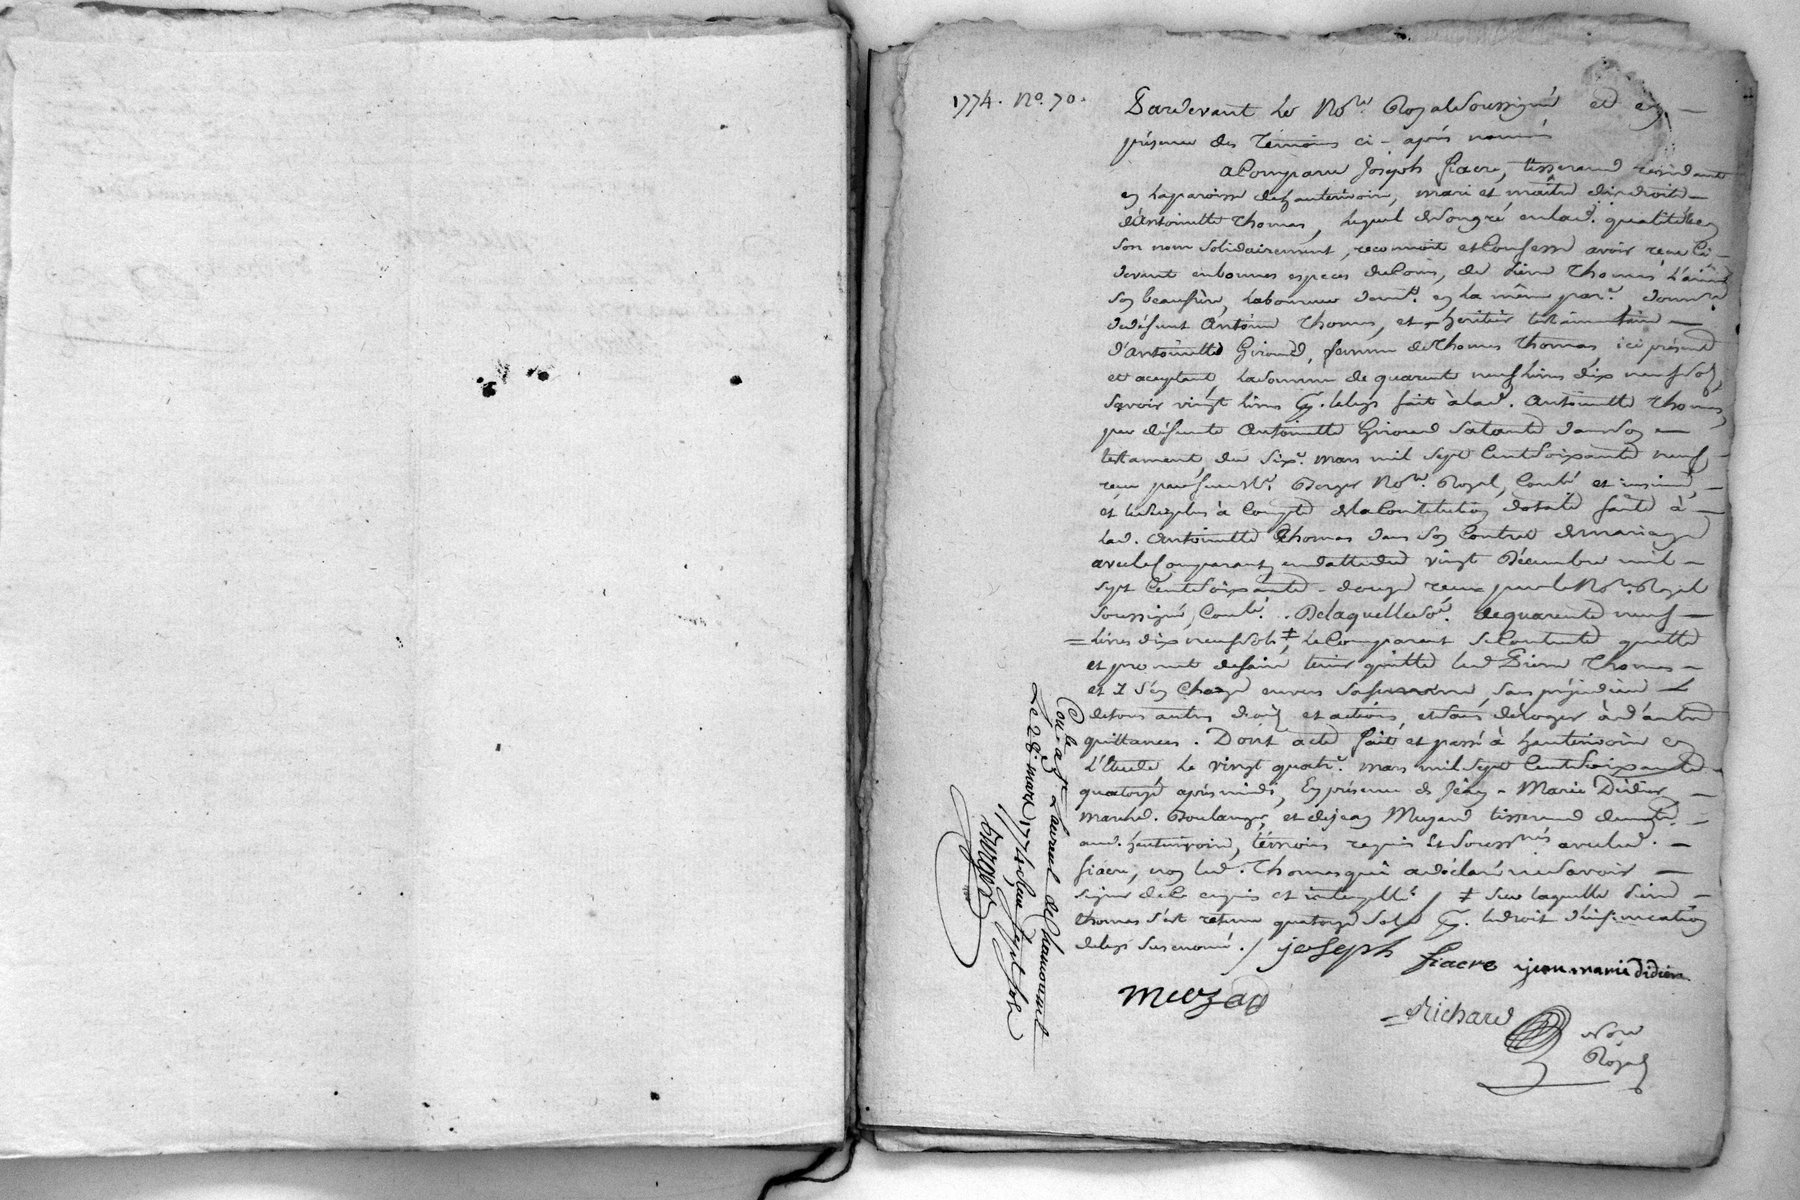 1774. No. 70.
Pardevant Le Nore. Royal Soussigné et en
présence des Témoins ci-après nommés
a Comparu Joseph fiacre, tisserand résidant
en la paroisse de hauterivoire, mari et maitre des droits
d'Antoinette Thomas, lequel de son gré en lad. qualité & en
son nom solidairement, reconnoit et Confesse avoir recu Ci-
devant en bonnes especes de Cours, de Pierre Thomas L'ainé
son beaufrère, laboureur demt. en la même parr.
de défunt Antoine Thomas, et heritier testamentaire
d'Antoinette Giroud, femme de Thomas Thomas ici présent
et aceptant, la somme de quarente neuf livres dix neuf sols,
sçavoir vingt livres pr. le legs fait à lad. Antoinette Thomas,
par défunte Antoinette Giroud sa tante dans son
testament du six. mars mil sept Cent soixante neuf
recu par feu Me. Berger Nore. Royal, Conlé et insinué,
et le surplus à Compte de la Constitution dotale faite à
lad. Antoinette Thomas dans son Contrat de mariage
avec le Comparant en datte du vingt Décembre mil
sept Cent soixante-douze recu par le Nore. Royal
soussigné, Conlé. De laquelle soe. de quarente neuf
livres dix neuf sols ‡, le Comparant se Contente quitte
et promet de faire tenir quitte led Pierre Thomas
et s'en Charge envers sa femme, sans préjudice
de tous autres droits et actions, et sans déroger à d'autres
quittances. Dont acte fait et passé à hauterivoire en
L'Etude Le vingt quatre. mars mil sept Cent soixante
quatorze après midi, En présence de Jean-Marie Didier,
marchd. Boulanger, et de jean Muzard tisserand demts.
aud. hauterivoire, témoins requis et soussnés avec led.
fiacre, non led. Thomas qui a déclaré ne savoir
signer de ce enquis et interpellé / ‡ sur laquelle Pierre
thomas s'est retenu quatorze sols pr. le droit d'insinuation
du legs susenoncé. / joseph
fiacre jean marie didier
Muzard
Richard Nore
Royal
Conlé. a St Laurent de Chamousset
Le 28. mars 1774 Recu sept sols
Berger